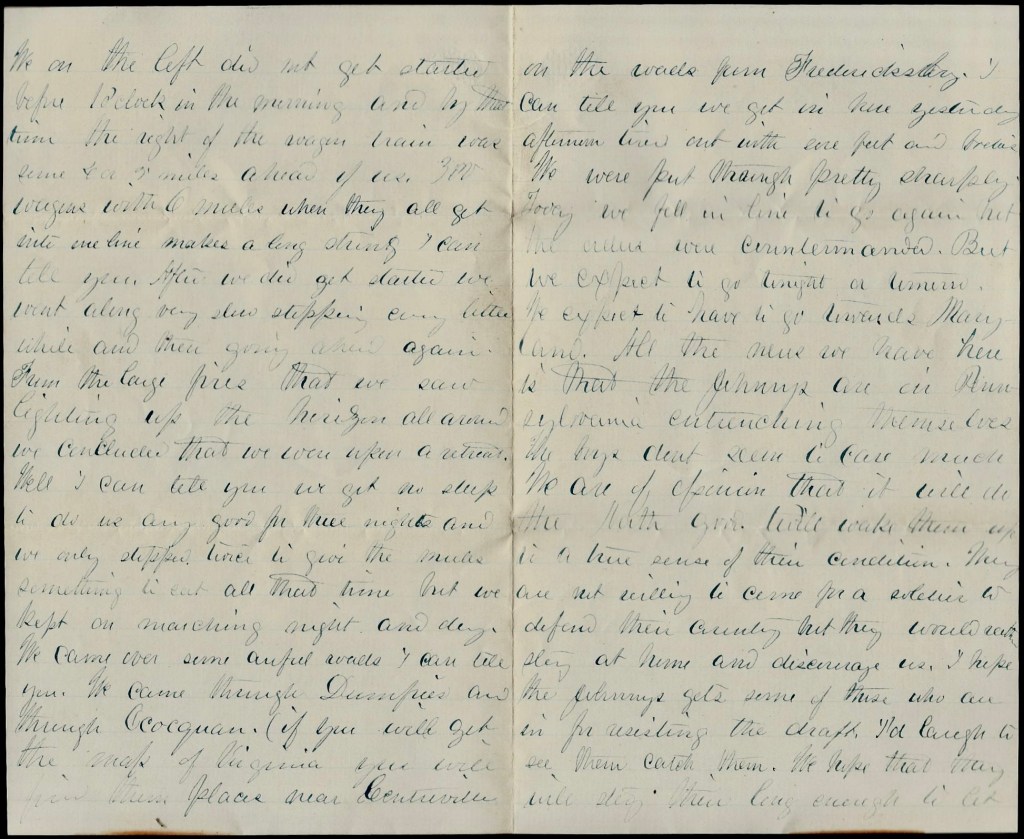 We on the left did not get started
before 1 o'clock in the morning and by that
time the right of the wagon train was
some 4 or 5 miles ahead of us.
wagons with 6 mules when they all get
into one line makes a long string I can
tell you. After we did get started we
went along very slow stopping every little
while and then going ahead again.
From the large fires that we saw
lighting up the horizon all around
we concluded that we were upon a retreat.
Well I can tell you we got no sleep
to do us any good for three nights and
we only stopped twice to give the mules
something to eat all that time but we
kept on marching night and day.
We came over some awful roads I can tell
you. We came through Dumfries and
through Ococquan. (if you will get
the map of Virginia you will
find these places near Centreville
on the roads from Fredericksburg. I
can tell you we got in here yesterday
afternoon tired out with sore feet and
We were put through pretty sharply.
Today we fell in line to go again but
the orders were countermanded. But
we expect to go tonight or tomorrow.
We expect to have to go towards Mary-
land. All the news we have here
is that the Johnnys are in Penn
sylvania entrenching themselves
The boys dont seem to care much
We are of opinion that it will do
the North good. Twill wake them up
to a true sense of their condition. They
are not willing to come for a soldier to
defend their country but they would rather
stay at home and discourage us. I hope
the Johnnys gets some of those who are
in for resisting the draft. I'd laugh to
see them catch them. We hope that they
will stay there long enough to let